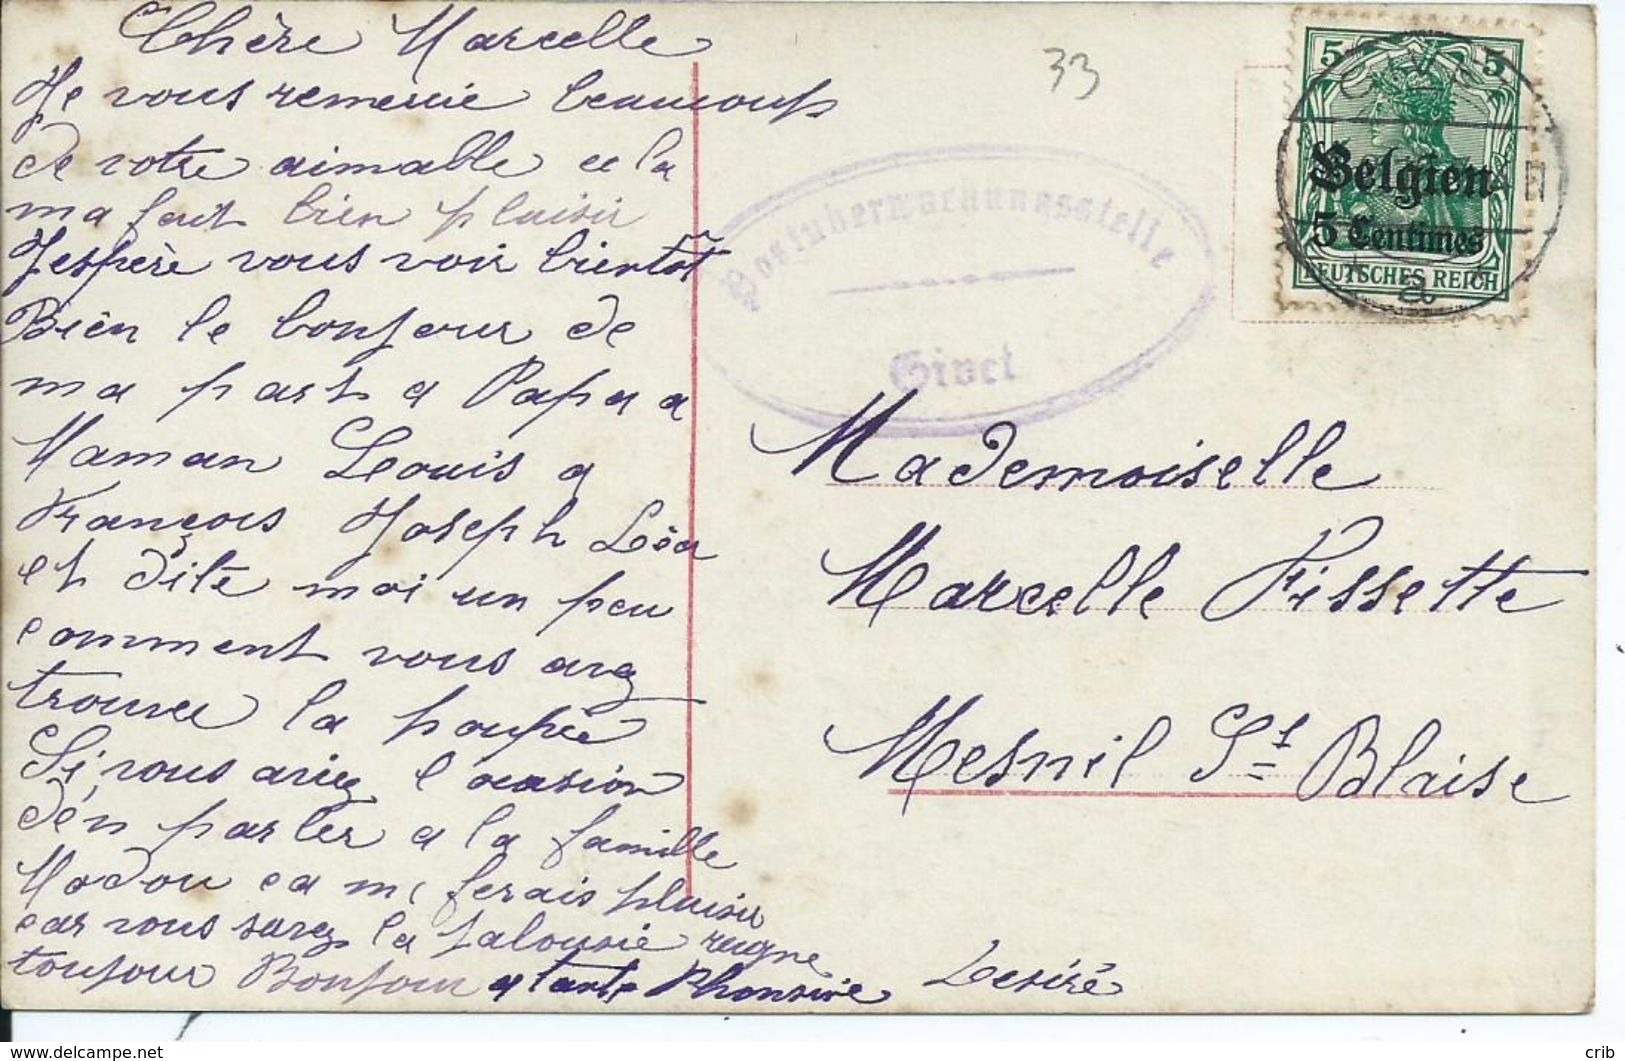 Chère Marcelle
Je vous remercie beaucoup
de votre aimable et la
ma fait bien plaisir
J'espère vous voir bientôt
Bien le bonjour de
ma part a Papa a
Maman Louis a
François Joseph Léa
et dite moi un peu
comment vous avez
trouvée la poupée
Si vous aviez l ocasion
d'en parler a la famille
Modou ca me ferais plaisir
car vous savez la jalousie reigne
toujour Bonjour a tante Phonsine
Desiré
33
Postüberwachungsstelle
Givet
5 5
Belgien
5 Centimes
DEUTSCHES REICH
a
Mademoiselle
Marcelle Fissette
Mesnil St Blaise
https://www.delcampe.net
crib